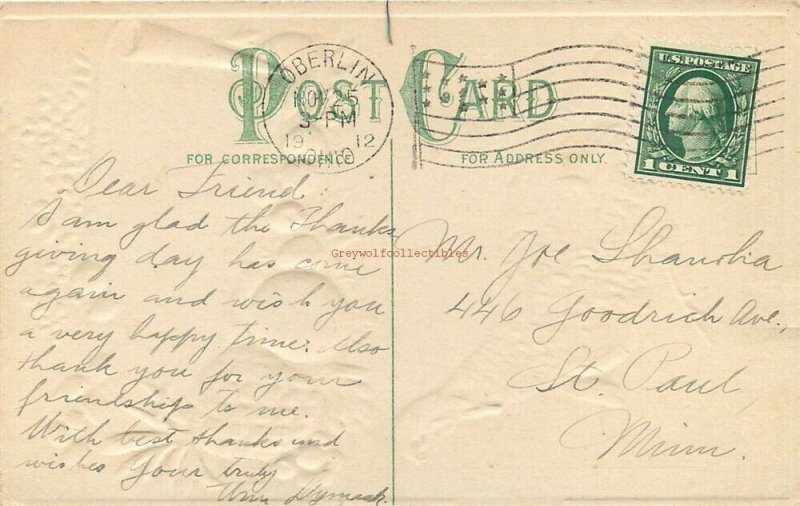 POST CARD
OBERLIN
NOV 25
3 PM
19 12
OHIO
U.S. POSTAGE
1 CENT 1
FOR CORRESPONDENCE
FOR ADDRESS ONLY.
Dear Friend:
I am glad the Thanks
giving day has come
again and wish you
a very happy time. Also
thank you for your
friendship to me.
With best thanks and
wishes Your truly
Greywolfcollectibles
Mr. Joe
446 Goodrich Ave.,
St. Paul
Minn.